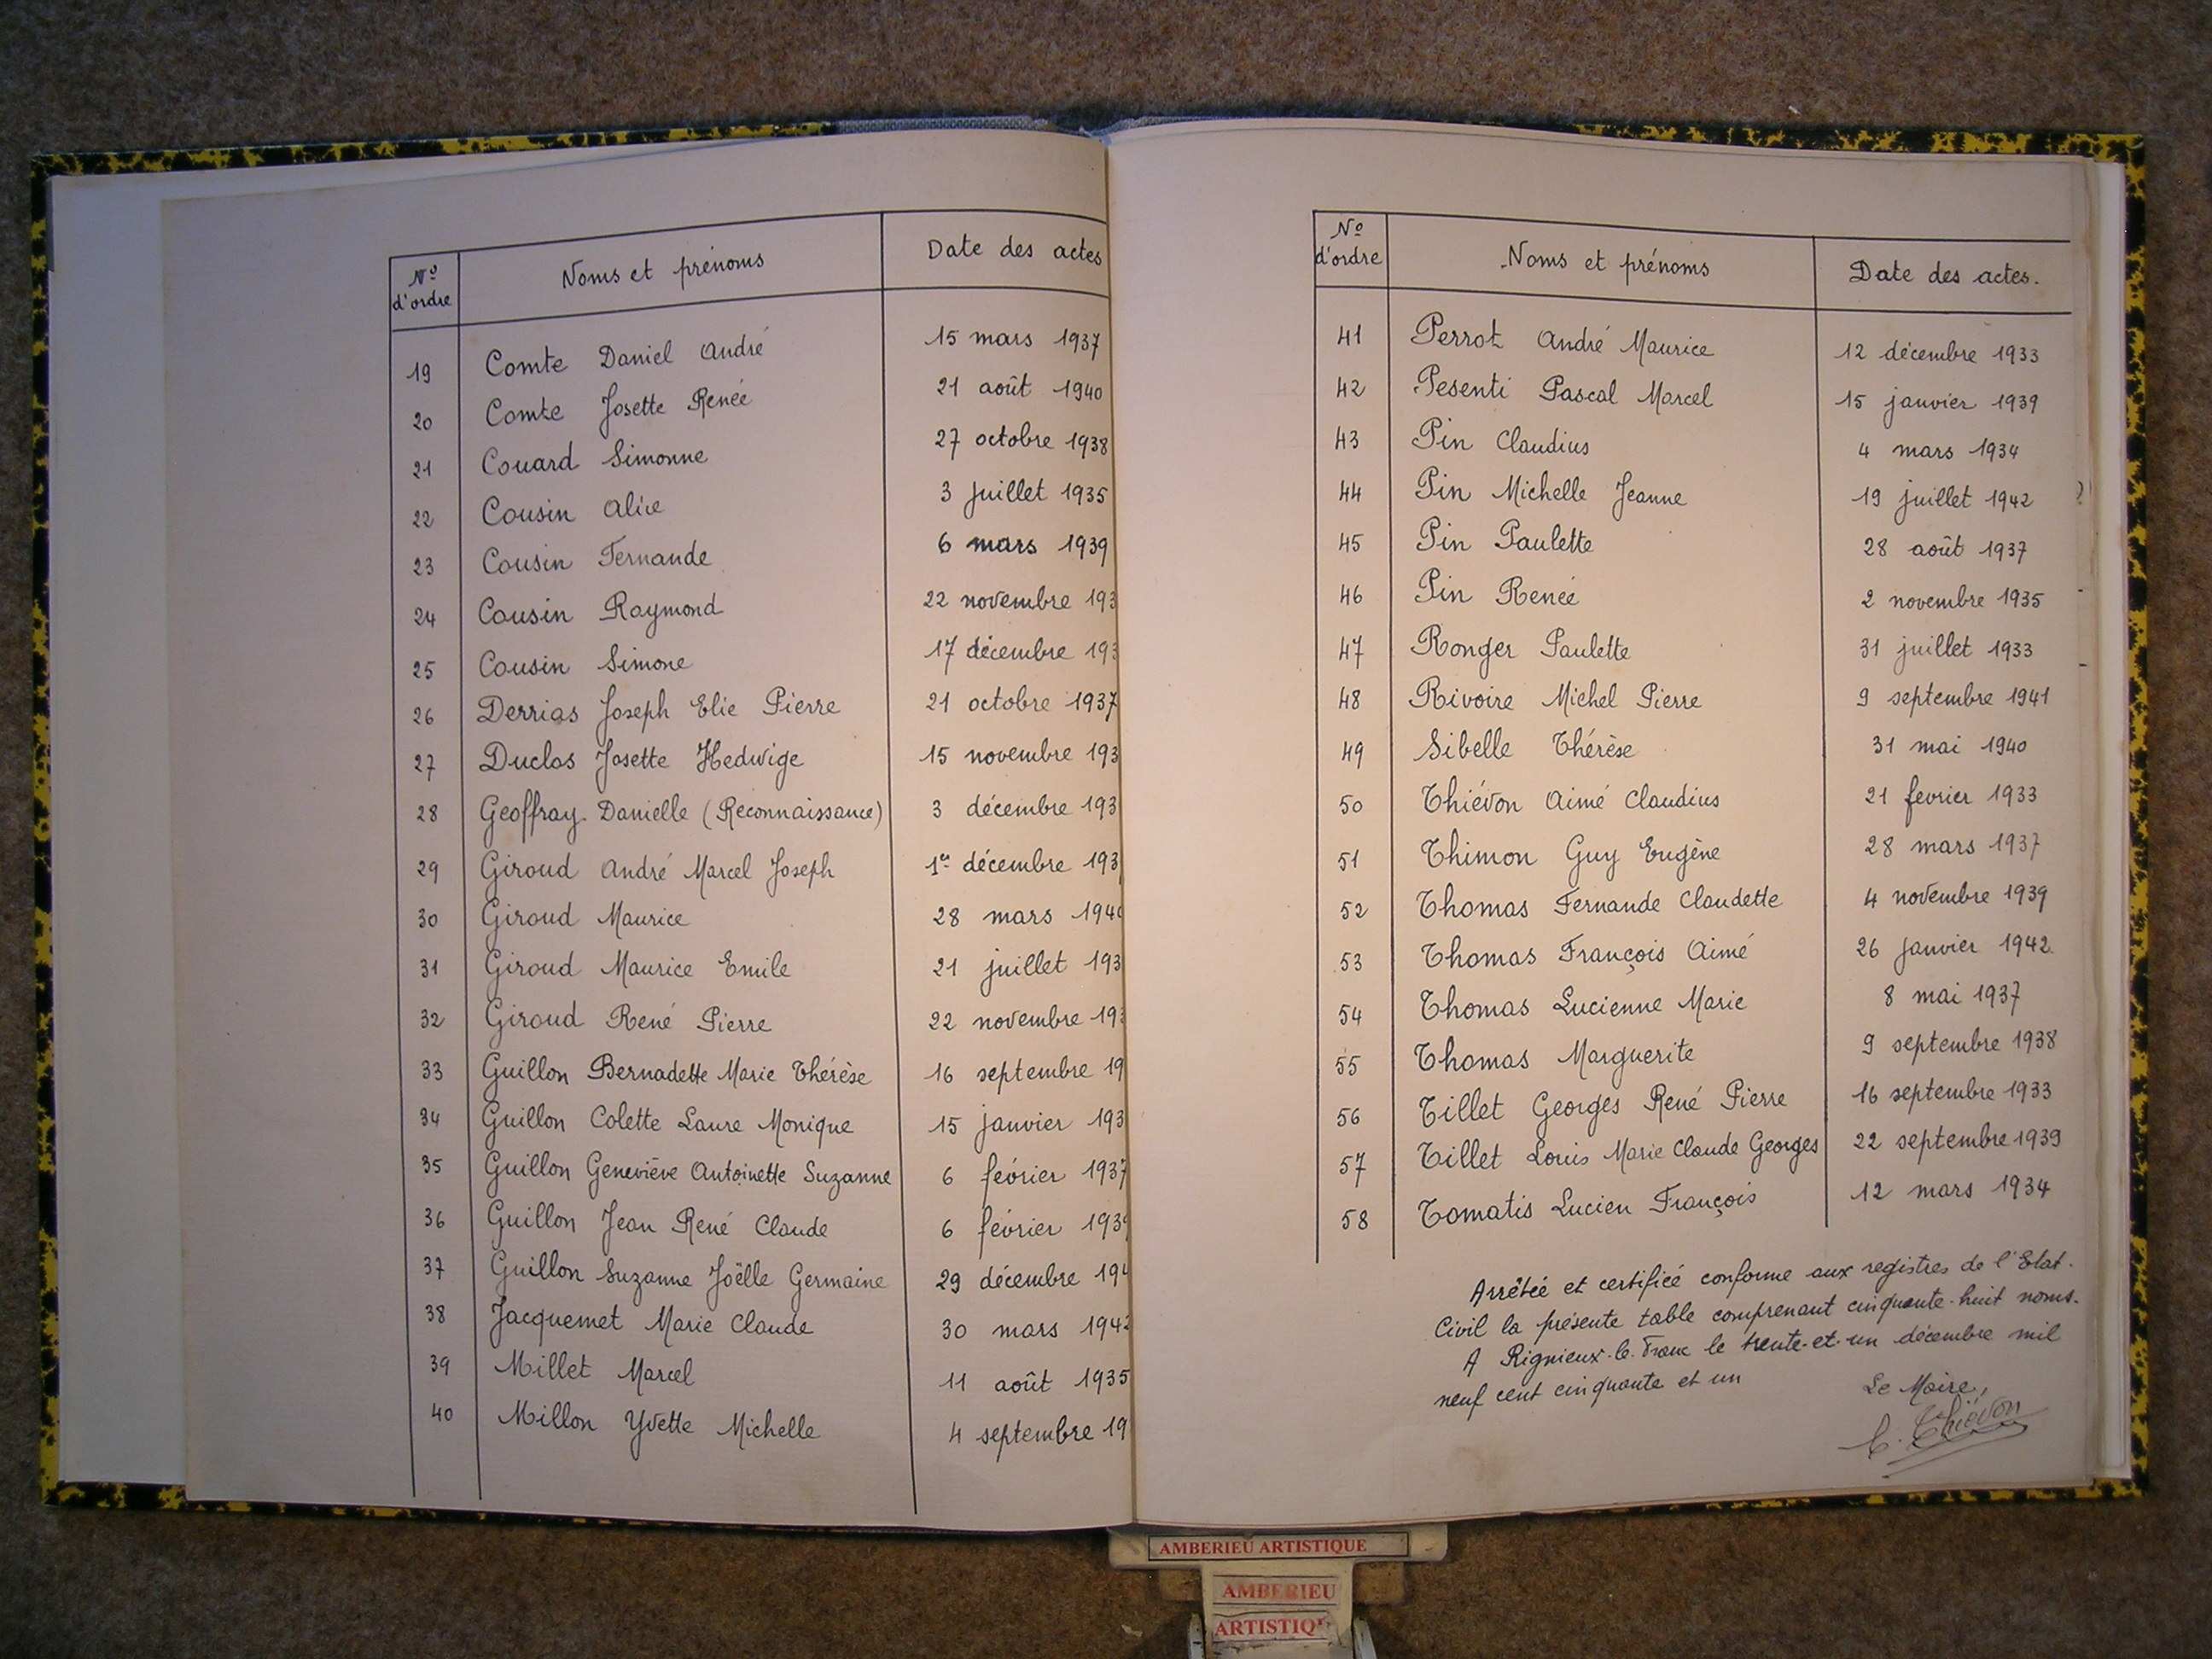 N° d'ordre Noms et prénoms Date des actes
19 Comte Daniel André 15 mars 1937
20 Comte Josette Renée 21 août 1940
21 Couard Simonne 27 octobre 1938
22 Cousin Alice 3 juillet 1935
23 Cousin Fernande 6 mars 1939
24 Cousin Raymond 22 novembre 193
25 Cousin Simone 17 décembre 193
26 Derrias Joseph Elie Pierre 21 octobre 1937
27 Duclos Josette Hedwige 15 novembre 193
28 Geoffray Danielle (Reconnaissance) 3 décembre 193
29 Giroud André Marcel Joseph 1er décembre 193
30 Giroud Maurice 28 mars 194
31 Giroud Maurice Emile 21 juillet 193
32 Giroud René Pierre 22 novembre 193
33 Guillon Bernadette Marie Thérèse 16 septembre 19
34 Guillon Colette Laure Monique 15 janvier 193
35 Guillon Geneviève Antoinette Suzanne 6 février 1937
36 Guillon Jean René Claude 6 février 193
37 Guillon Suzanne Joëlle Germaine 29 décembre 194
38 Jacquemet Marie Claude 30 mars 1942
39 Millet Marcel 11 août 1935
40 Millon Yvette Michelle 4 septembre 19
N° d'ordre Noms et prénoms Date des actes.
41 Perrot André Maurice 12 décembre 1933
42 Pesenti Pascal Marcel 15 janvier 1939
43 Pin Claudius 4 mars 1934
44 Pin Michelle Jeanne 19 juillet 1942
45 Pin Paulette 28 août 1937
46 Pin Renée 2 novembre 1935
47 Ronger Paulette 31 juillet 1933
48 Rivoire Michel Pierre 9 septembre 1941
49 Sibelle Thérèse 31 mai 1940
50 Thiévon Aimé Claudius 21 fevrier 1933
51 Thimon Guy Eugène 28 mars 1937
52 Thomas Fernande Claudette 4 novembre 1939
53 Thomas François Aimé 26 janvier 1942
54 Thomas Lucienne Marie 8 mai 1937
55 Thomas Marguerite 9 septembre 1938
56 Tillet Georges René Pierre 16 septembre 1933
57 Tillet Louis Marie Claude Georges 22 septembre 1939
58 Tomatis Lucien François 12 mars 1934
Arrêtée et certifiée conforme aux registres de l'Etat-
Civil la présente table comprenant cinquante-huit noms.
A Rignieux-le-Franc le trente-et-un décembre mil
neuf cent cinquante et un
Le Maire,
C. Thiévon
AMBERIEU ARTISTIQUE
AMBERIEU
ARTISTIQ